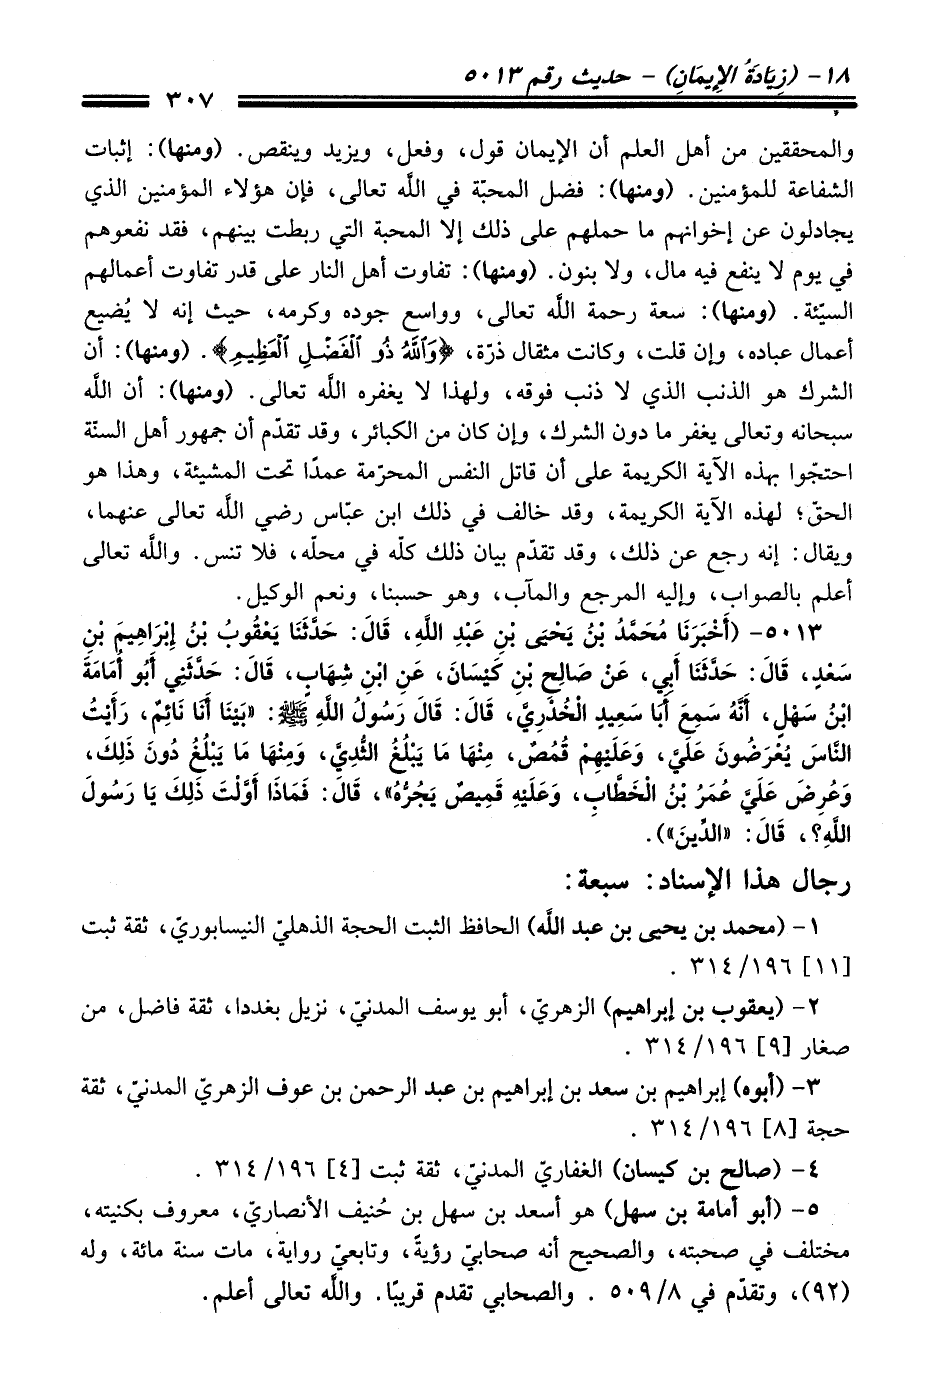 ١٨- (زِيَادَةُ الإِيمَانِ) - حديث رقم ٥٠١٣
٣٠٧
والمحققين من أهل العلم أن الإيمان قول، وفعل، ويزيد وينقص. (ومنها): إثبات
الشفاعة للمؤمنين. (ومنها): فضل المحبّة في اللَّه تعالى، فإن هؤلاء المؤمنين الذي
يجادلون عن إخوانهم ما حملهم على ذلك إلا المحبة التي ربطت بينهم، فقد نفعوهم
في يوم لا ينفع فيه مال، ولا بنون. (ومنها): تفاوت أهل النار على قدر تفاوت أعمالهم
السيّئة. (ومنها): سعة رحمة اللَّه تعالى، وواسع جوده وكرمه، حيث إنه لا يُضيع
أعمال عباده، وإن قلت، وكانت مثقال ذرّة، ﴿وَٱللَّهُ ذُو ٱلْفَضْلِ ٱلْعَظِيمِ﴾. (ومنها): أن
الشرك هو الذنب الذي لا ذنب فوقه، ولهذا لا يغفره اللَّه تعالى. (ومنها): أن اللَّه
سبحانه وتعالى يغفر ما دون الشرك، وإن كان من الكبائر، وقد تقدّم أن جمهور أهل السنّة
احتجّوا بهذه الآية الكريمة على أن قاتل النفس المحرّمة عمدًا تحت المشيئة، وهذا هو
الحقّ؛ لهذه الآية الكريمة، وقد خالف في ذلك ابن عبّاس رضي اللَّه تعالى عنهما،
ويقال: إنه رجع عن ذلك، وقد تقدّم بيان ذلك كلّه في محلّه، فلا تنس. واللَّه تعالى
أعلم بالصواب، وإليه المرجع والمآب، وهو حسبنا، ونعم الوكيل.
٥٠١٣- (أَخْبَرَنَا مُحَمَّدُ بْنُ يَحْيَى بْنِ عَبْدِ اللَّهِ، قَالَ: حَدَّثَنَا يَعْقُوبُ بْنُ إِبْرَاهِيمَ بْنِ
سَعْدٍ، قَالَ: حَدَّثَنَا أَبِي، عَنْ صَالِحِ بْنِ كَيْسَانَ، عَنِ ابْنِ شِهَابٍ، قَالَ: حَدَّثَنِي أَبُو أُمَامَةَ
ابْنُ سَهْلٍ، أَنَّهُ سَمِعَ أَبَا سَعِيدٍ الْخُدْرِيَّ، قَالَ: قَالَ رَسُولُ اللَّهِ ﷺ: «بَيْنَا أَنَا نَائِمٌ، رَأَيْتُ
النَّاسَ يُعْرَضُونَ عَلَيَّ، وَعَلَيْهِمْ قُمُصٌ، مِنْهَا مَا يَبْلُغُ الثُّدِيَّ، وَمِنْهَا مَا يَبْلُغُ دُونَ ذَلِكَ،
وَعُرِضَ عَلَيَّ عُمَرُ بْنُ الْخَطَّابِ، وَعَلَيْهِ قَمِيصٌ يَجُرُّهُ»، قَالَ: فَمَاذَا أَوَّلْتَ ذَلِكَ يَا رَسُولَ
اللَّهِ؟، قَالَ: «الدِّينَ»).
رجال هذا الإسناد: سبعة:
١- (محمد بن يحيى بن عبد اللَّه) الحافظ الثبت الحجة الذهليّ النيسابوريّ، ثقة ثبت
[١١] ١٩٦/ ٣١٤ .
٢- (يعقوب بن إبراهيم) الزهريّ، أبو يوسف المدنيّ، نزيل بغددا، ثقة فاضل، من
صغار [٩] ١٩٦/ ٣١٤ .
٣- (أبوه) إبراهيم بن سعد بن إبراهيم بن عبد الرحمن بن عوف الزهريّ المدنيّ، ثقة
حجة [٨] ١٩٦/ ٣١٤ .
٤- (صالح بن كيسان) الغفاريّ المدنيّ، ثقة ثبت [٤] ١٩٦/ ٣١٤ .
٥- (أبو أمامة بن سهل) هو أسعد بن سهل بن حُنيف الأنصاريّ، معروف بكنيته،
مختلف في صحبته، والصحيح أنه صحابيّ رؤيةً، وتابعيّ رواية، مات سنة مائة، وله
(٩٢)، وتقدّم في ٨/ ٥٠٩ . والصحابي تقدم قريبًا. واللَّه تعالى أعلم.